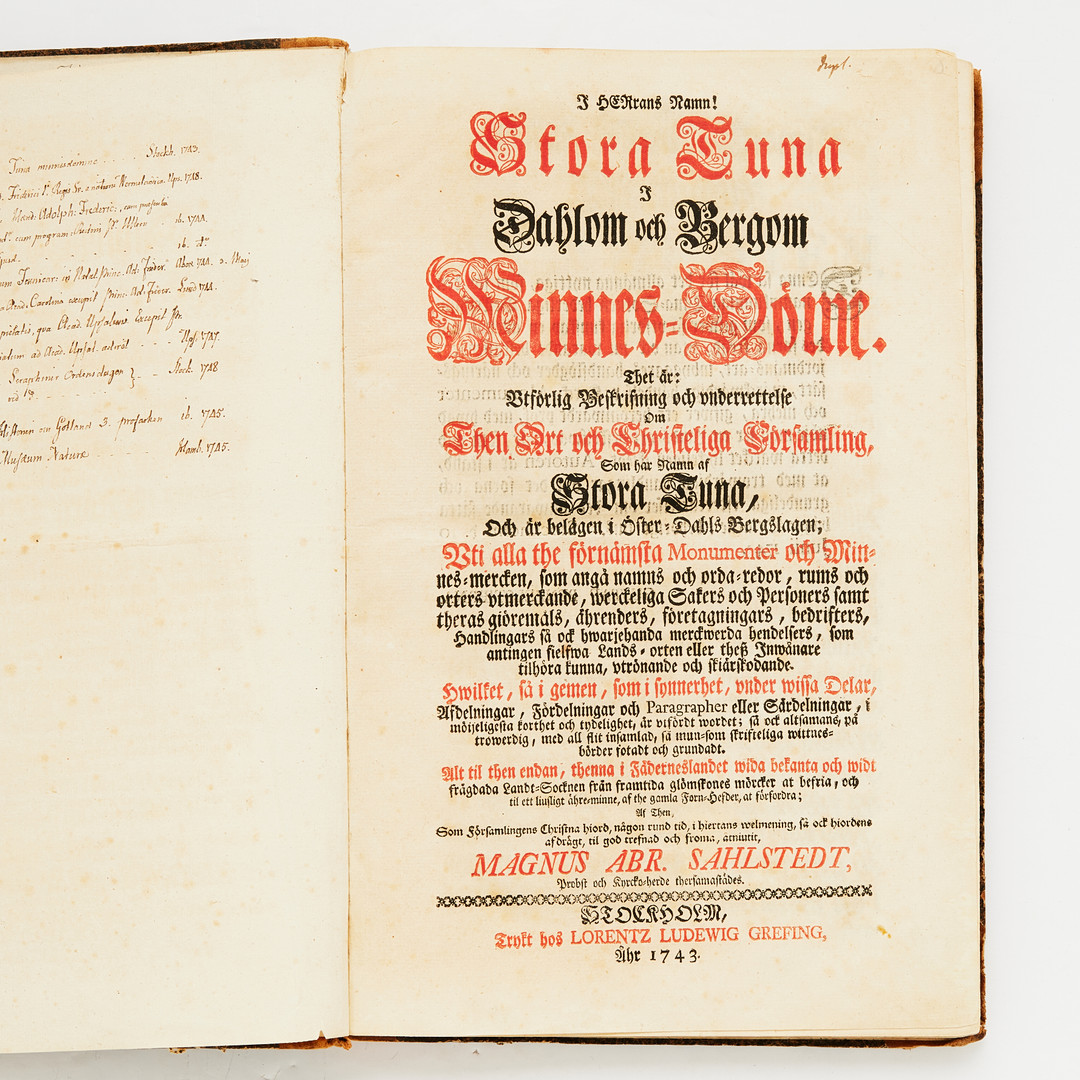 Tuna minnesdömme . . . . Stockh. 1743.
Friderici 1. Regis Sv.
Ups. 1748.
Adolph: Frederic:, cum
cum program:
ib. 1744.
ib.
Ad: Frider.
Acad. Carolina excepit Princ. Ad. Frider. Lund 1744.
pietatis, qva Acad. Upsaliens. Excepit
ad Acad. Upsal.
Ups. 1747.
Seraphimer Ordensdagen } - - Stock. 1748
Gotland
ib. 1745.
Musæum Naturæ
Hamb. 1745.
J HERrans Namn!
Stora Tuna
J
Dahlom och Bergom
Minnes-Döme.
Thet är:
Vtförlig Beskrifning och vnderrettelse
Om
Then Ort och Christeliga Församling,
Som har Namn af
Stora Tuna,
Och är belägen i Öster-Dahls Bergslagen;
Vti alla the förnämsta Monumenter och Min-
nes-mercken, som angå namns och orda-redor, rums och
orters vtmerckande, werckeliga Sakers och Personers samt
theras giöremåls, ährenders, företagningars, bedrifters,
Handlingars så ock hwarjehanda merckwerda hendelsers, som
antingen sielfwa Lands-orten eller theß Inwånare
tilhöra kunna, vtrönande och skiärskodande.
Hwilket, så i gemen, som i synnerhet, vnder wissa Delar,
Afdelningar, Fördelningar och Paragrapher eller Särdelningar, i
möijeligesta korthet och tydelighet, är vtfördt wordet; så ock altsamans, på
trowerdig, med all flit insamlad, så mun-som skrifteliga wittnes-
börder fotadt och grundadt.
Alt til then endan, thenna i Fäderneslandet wida bekanta och widt
frägdada Landt-Socknen från framtida glömskones mörcker at befria, och
til ett liusligt ähre-minne, af the gamla Forn-Hefder, at förfordra;
Af Then,
Som Församlingens Christna hiord, någon rund tid, i hiertans welmening, så ock hiordens
afdrägt, til god trefnad och froma, atniutit,
MAGNUS ABR. SAHLSTEDT,
Probst och Kyrcko-herde thersamastädes.
STOCKHOLM,
Trykt hos LORENTZ LUDEWIG GREFING,
Åhr 1743.